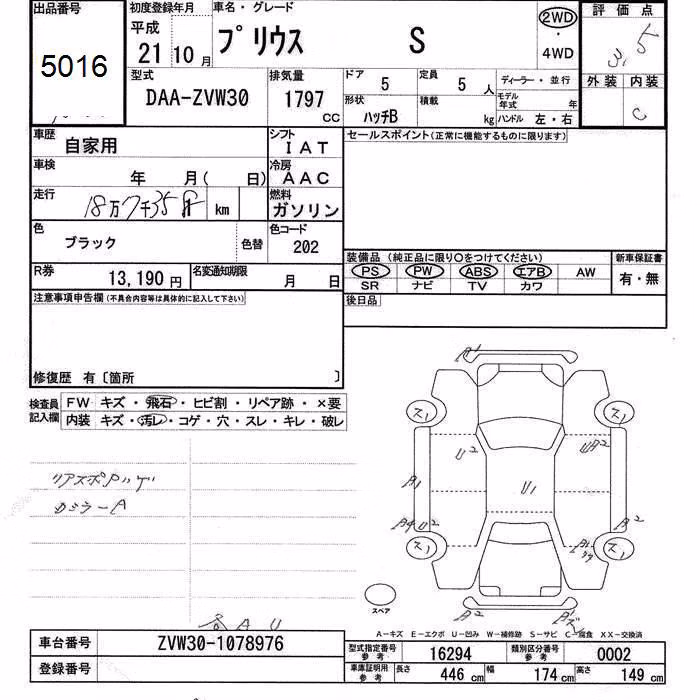 出品番号 初度登録年月 車名・グレード 評価点
5016 平成 21 10月 プリウス S 2WD ・ 4WD 3.5
型式 排気量 ドア 定員 ディーラー・並行 外装 内装
DAA-ZVW30 1797 CC 5 5 人 モデル年式 年 C
形状 積載
ハッチB kg ハンドル 左・右
車歴 自家用 シフト IAT セールスポイント(正常に機能するものに限ります)
車検 年 月( 日) 冷房 AAC
走行 18万7千35 km 燃料 ガソリン
色 ブラック 色替 色コード 202
装備品 (純正品に限り○をつけてください) 新車保証書
PS PW ABS エアB AW 有・無
SR ナビ TV カワ
R券 13,190円 名変通知期限 月 日
後日品
注意事項申告欄(不具合内容等は具体的に記入して下さい)
修復歴 有〔箇所 〕
検査員記入欄 FW キズ・飛石・ヒビ割・リペア跡・×要
内装 キズ・汚レ・コゲ・穴・スレ・キレ・破レ
A1
ス1 ス1
U2
A1 U1
U2 A2
ス1 ス1
スペア
A2
A U
A-キズ E-エクボ U-凹み W-補修跡 S-サビ C-腐食 XX-交換済
車台番号 ZVW30-1078976
登録番号
型式指定番号 参考 16294 類別区分番号 参考 0002
車庫証明用 参考 長さ 446 cm 幅 174 cm 高さ 149 cm